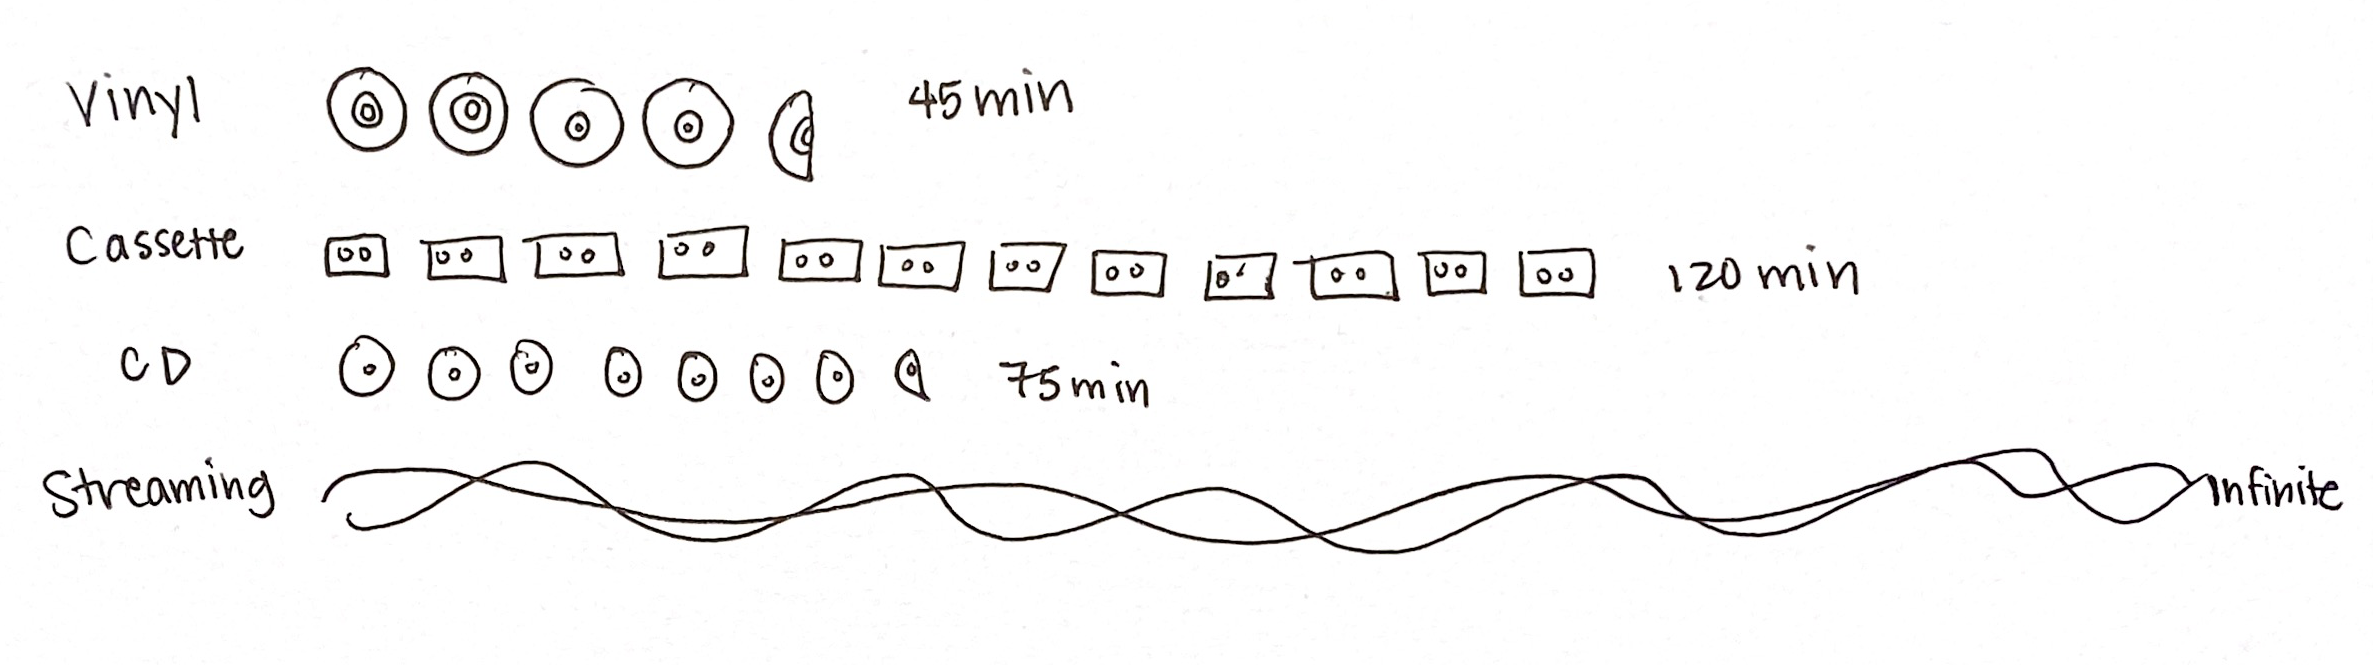 Vinyl 45 min
Cassette 120 min
CD 75 min
Streaming Infinite